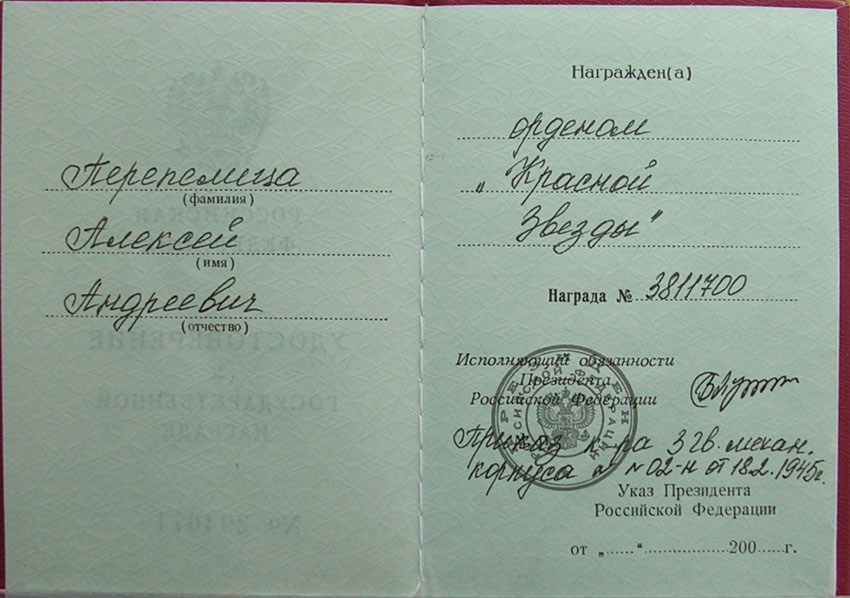 Перепелица
(фамилия)
Алексей
(имя)
Андреевич
(отчество)
РОССИЙСКАЯ
УДОСТОВЕРЕНИЕ
К
ГОСУДАРСТВЕННОЙ
НАГРАДЕ
№ 294071
Награжден(а)
орденом
„Красной
Звезды"
Награда № 3811700
Исполняющий обязанности
Президента
Российской Федерации
Приказ к-ра 3 гв. механ.
корпуса № 02-н от 18.2.1945г.
Указ Президента
Российской Федерации
от „......“ .................. 200......г.